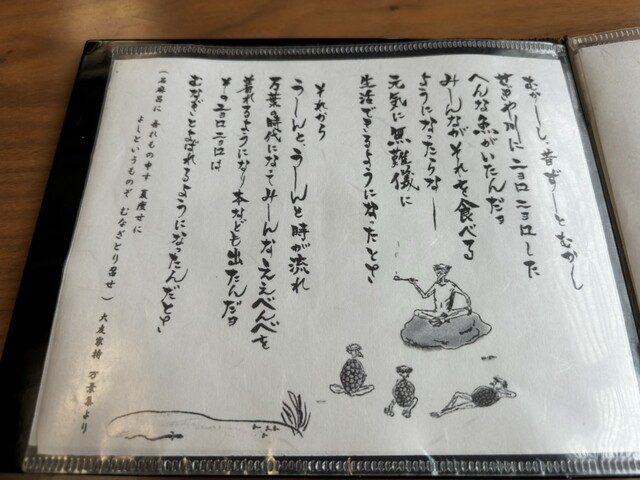 むかーし、昔ずーとむかし
せきや川にニョロニョロした
へんな魚がいたんだヨ
みーんながそれを食べる
ようになったらなー
元気に無難儀に
生活できるようになったとサ
それから
うーんと、うーんと時が流れ
万葉の時代になってみーんなええべんべを
着れるようになり本なども出たんだヨ
そのニョロニョロは
むなぎとよばれるようになったんだとサ
(石麻呂に 吾れもの申す 夏痩せに
よしというものぞ むなぎとり召せ)
大友家持 万葉集より